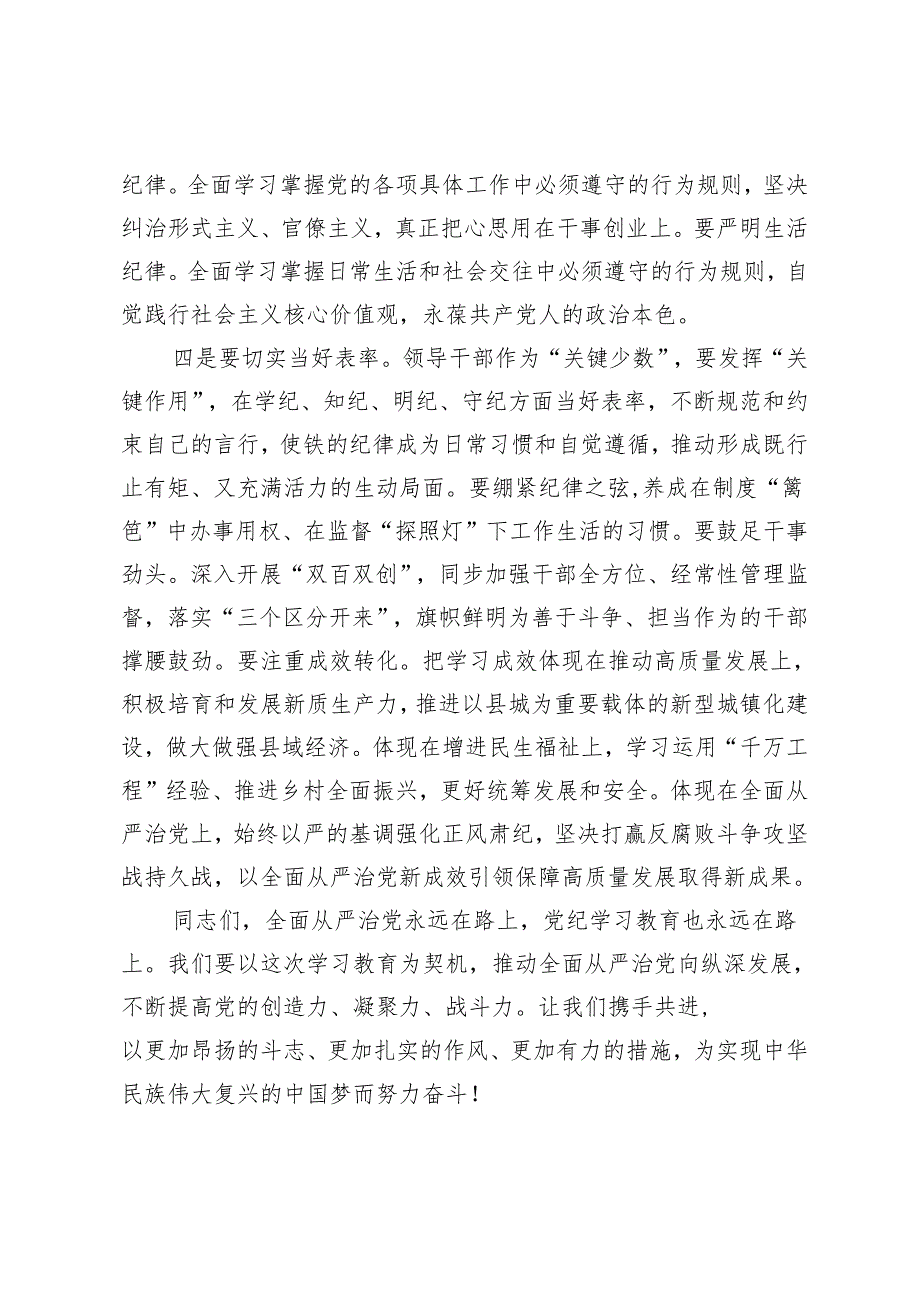 纪律。全面学习掌握党的各项具体工作中必须遵守的行为规则，坚决
纠治形式主义、官僚主义，真正把心思用在干事创业上。要严明生活
纪律。全面学习掌握日常生活和社会交往中必须遵守的行为规则，自
觉践行社会主义核心价值观，永葆共产党人的政治本色。
四是要切实当好表率。领导干部作为“关键少数”，要发挥“关
键作用”，在学纪、知纪、明纪、守纪方面当好表率，不断规范和约
束自己的言行，使铁的纪律成为日常习惯和自觉遵循，推动形成既行
止有矩、又充满活力的生动局面。要绷紧纪律之弦,养成在制度“篱
笆”中办事用权、在监督“探照灯”下工作生活的习惯。要鼓足干事
劲头。深入开展“双百双创”，同步加强干部全方位、经常性管理监
督，落实“三个区分开来”，旗帜鲜明为善于斗争、担当作为的干部
撑腰鼓劲。要注重成效转化。把学习成效体现在推动高质量发展上，
积极培育和发展新质生产力，推进以县城为重要载体的新型城镇化建
设，做大做强县域经济。体现在增进民生福祉上，学习运用“千万工
程”经验、推进乡村全面振兴，更好统筹发展和安全。体现在全面从
严治党上，始终以严的基调强化正风肃纪，坚决打赢反腐败斗争攻坚
战持久战，以全面从严治党新成效引领保障高质量发展取得新成果。
同志们，全面从严治党永远在路上，党纪学习教育也永远在路
上。我们要以这次学习教育为契机，推动全面从严治党向纵深发展，
不断提高党的创造力、凝聚力、战斗力。让我们携手共进,
以更加昂扬的斗志、更加扎实的作风、更加有力的措施，为实现中华
民族伟大复兴的中国梦而努力奋斗！